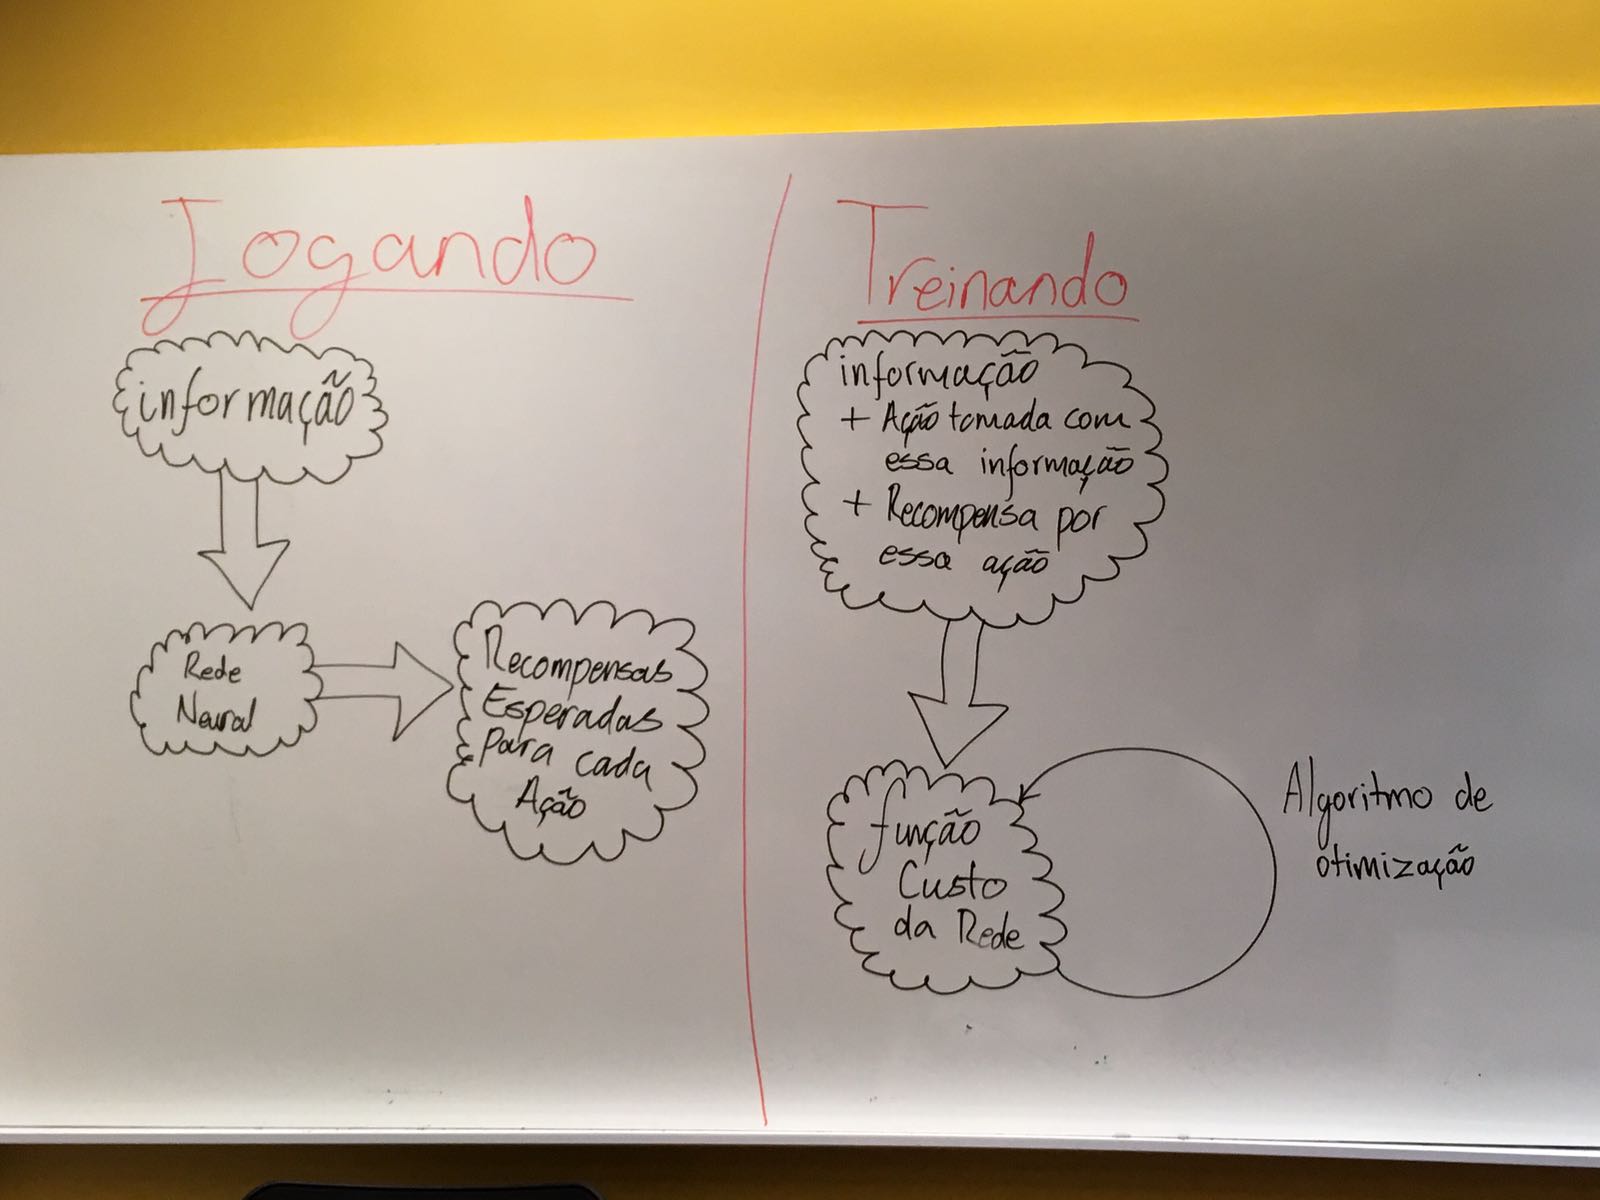 Jogando
informação
Rede
Neural
Recompensas
Esperadas
Para cada
Ação
Treinando
informação
+ Ação tomada com
essa informação
+ Recompensa por
essa ação
função
Custo
da Rede
Algoritmo de
otimização